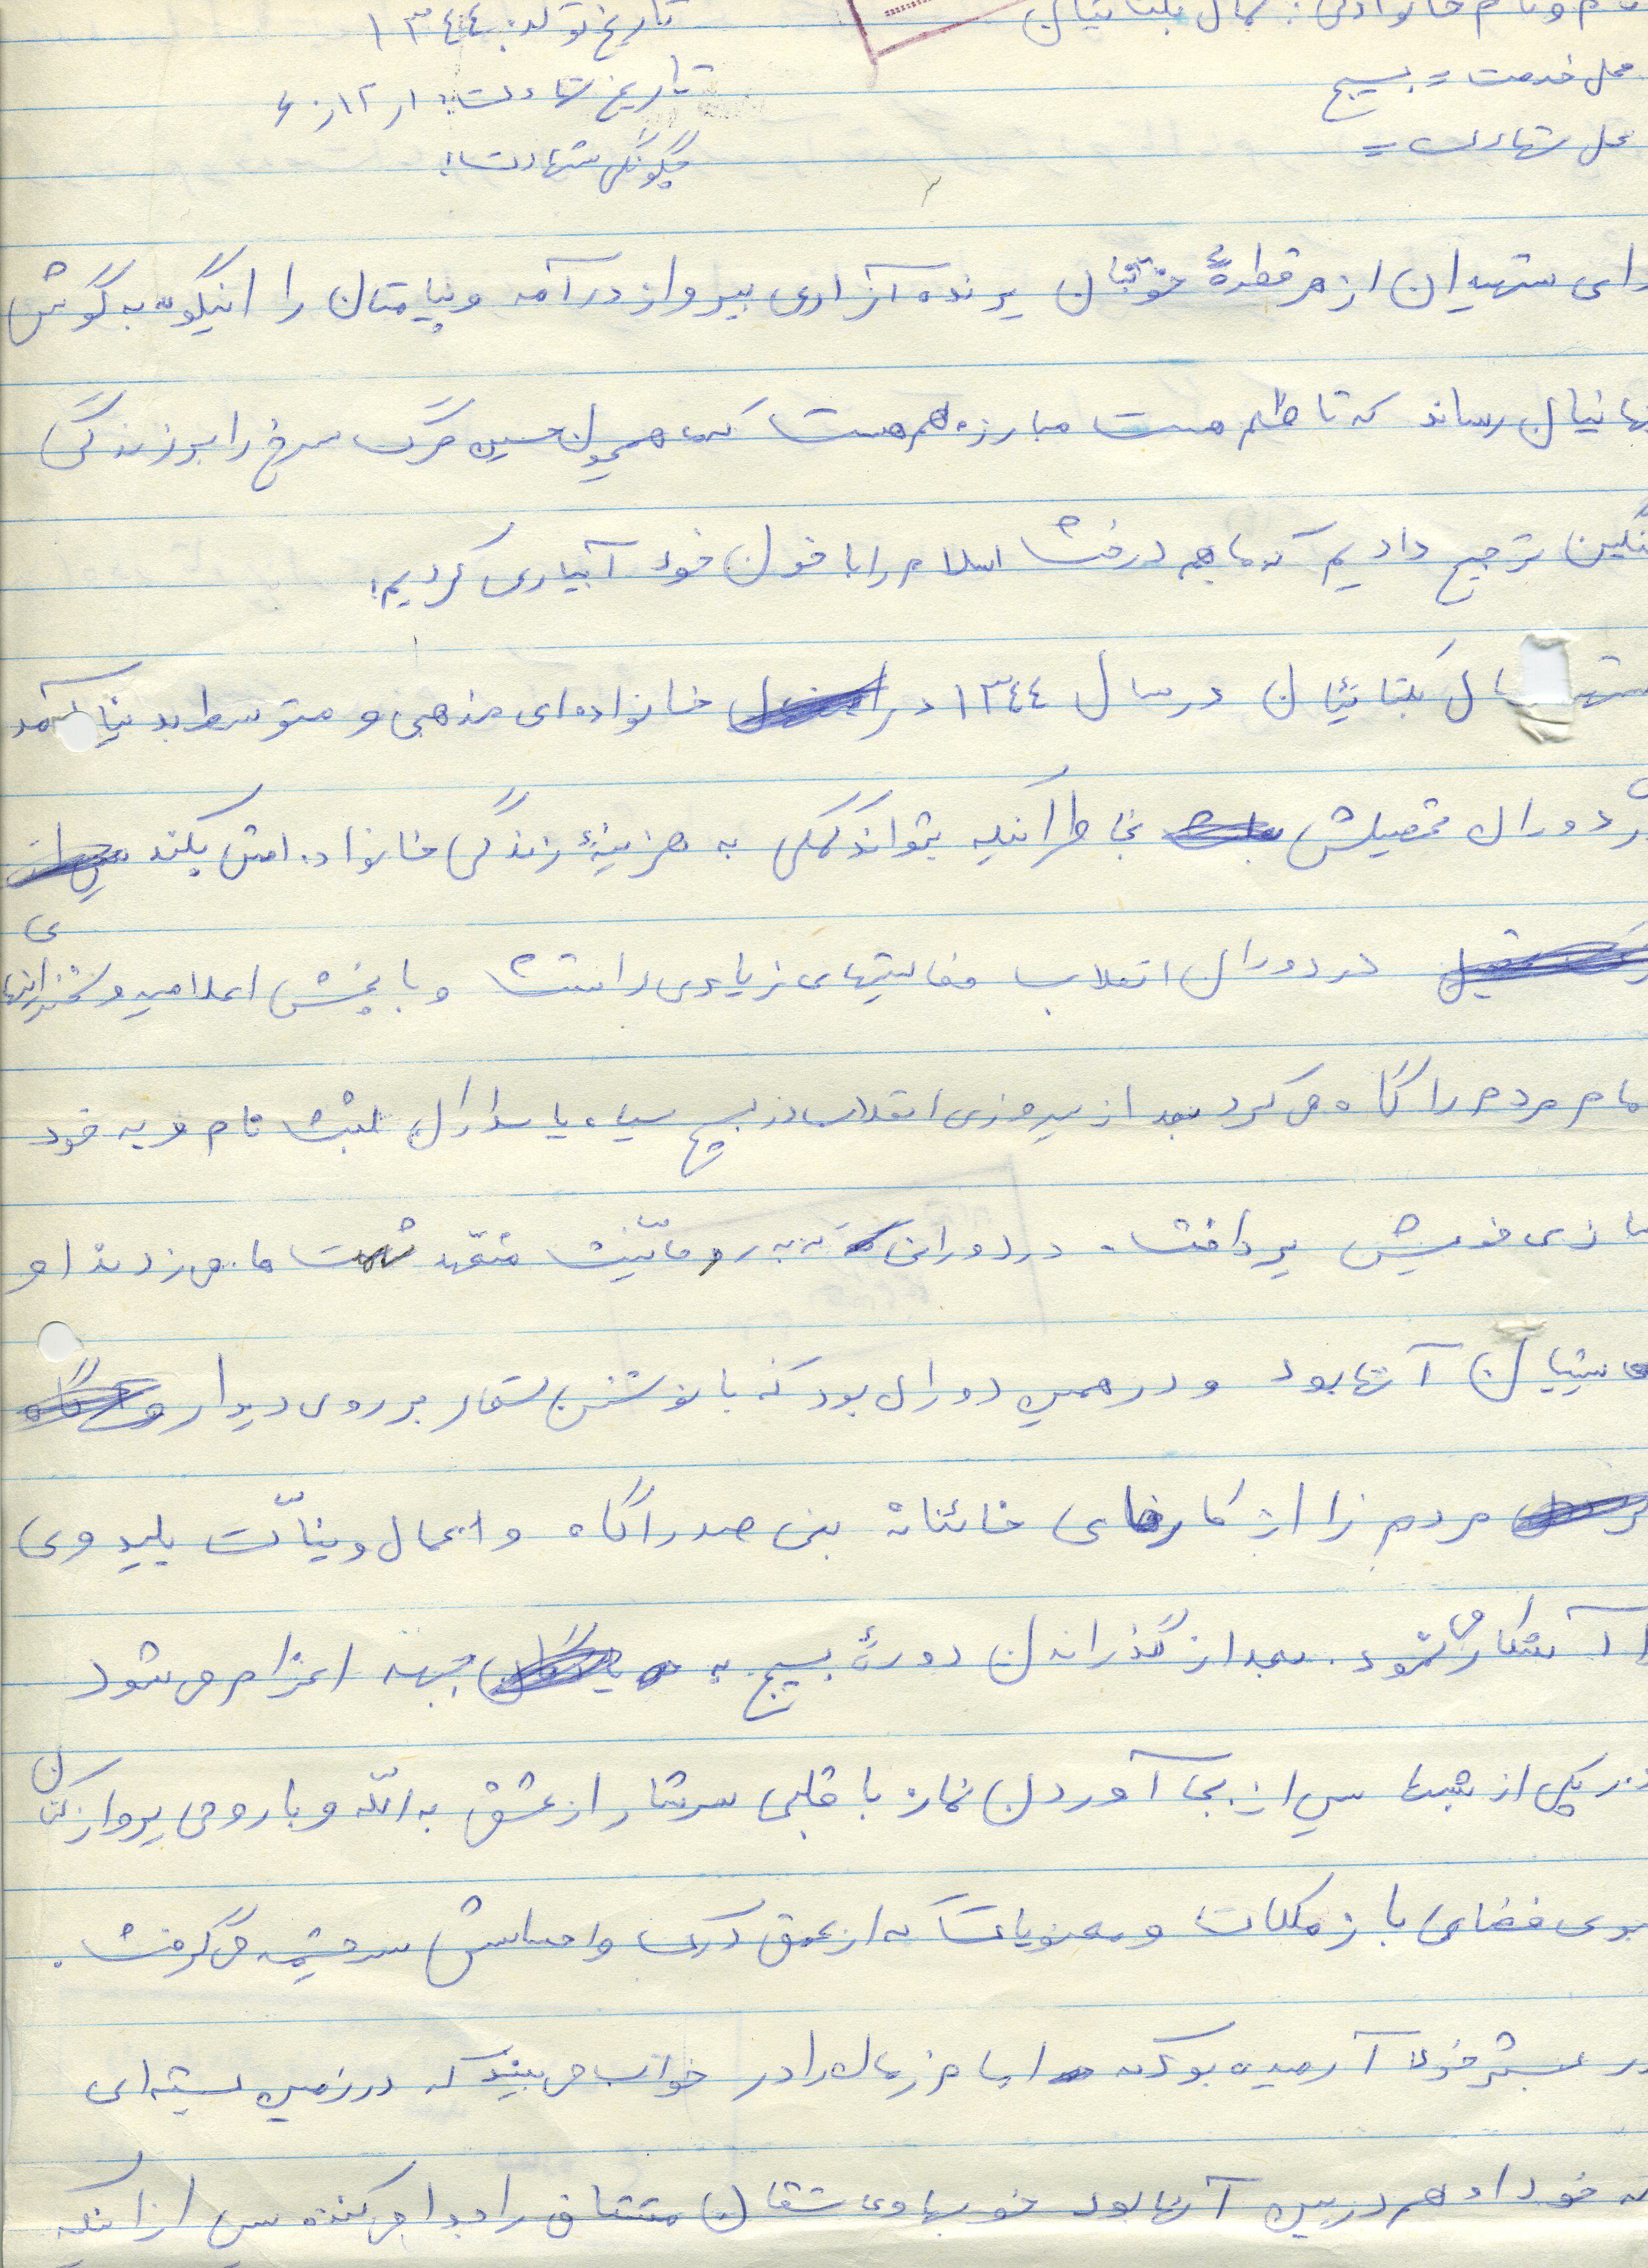 نام و نام خانوادگی: کمال یکتائیان تاریخ تولد: ١٣٤٤
محل خدمت = بسیج تاریخ شهادت: ١ر١٢ر٦٠
محل شهادت = چگونگی شهادت:
وای شهیدان از هر قطرهٔ خونتان پرنده آزادی بپرواز درآمد و پیامتان را اینگونه به گوش
جهانیان رساند که تا ظلم هست مبارزه هم هست که ما همچون حسین مرگ سرخ را بر زندگی
ننگین ترجیح دادیم که ما هم درخت اسلام را با خون خود آبیاری کردیم.
کمال یکتائیان در سال ١٣٤٤ در خانواده‌ای مذهبی و متوسط بدنیا آمد
در دوران تحصیلش بخاطر اینکه بتواند کمکی به هزینهٔ زندگی خانواده اش بکند
در دوران انقلاب فعالیتهای زیادی داشت و با پخش اعلامیه و سخنرانیهای
امام مردم را آگاه می کرد بعد از پیروزی انقلاب در بسیج سپاه پاسداران ثبت نام و به خود
سازی خویش پرداخت. در دورانی که به روحانیت متعهد تهمت ها می زدند او
پشتیبان آنها بود و در همین دوران بود که با نوشتن شعار بر روی دیوار
مردم را از کارهای خائنانه بنی صدر آگاه و اعمال و نیات پلید وی
را آشکار می نمود. بعد از گذراندن دورهٔ بسیج به جبهه اعزام می شود
در یکی از شبها پس از بجا آوردن نماز با قلبی سرشار از عشق به الله و با روحی پرواز کنان
بسوی فضای باز ملکات و معنویات که از عمق درک و احساسش سرچشمه می گرفت.
در بستر خود آرمیده بود که امام زمان را در خواب می بیند که در زمین بسته ای
که خود او هم در بین آنها بود خوبها و عاشقان مشتاق را جدا می کند پس از اینکه